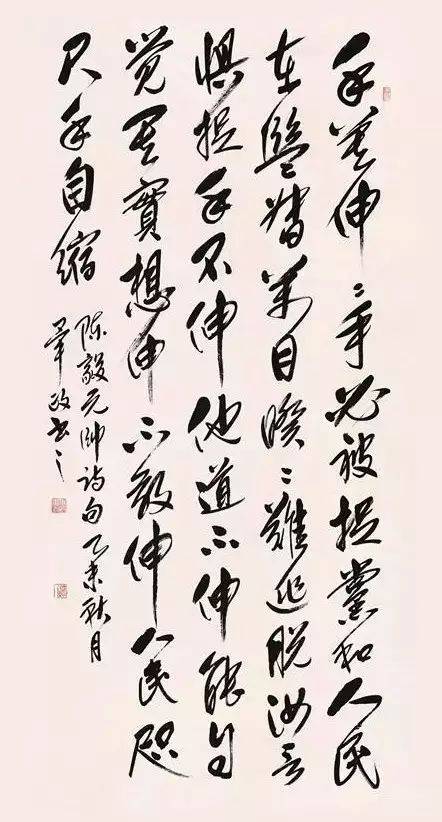 手莫伸〻手必被捉黨和人民
在監督萬目睽〻難逃脱汝言
惧捉手不伸他道不伸能自
觉其實想伸不敢伸人民咫
尺手自縮
陈毅元帥诗句乙未秋月
政书之